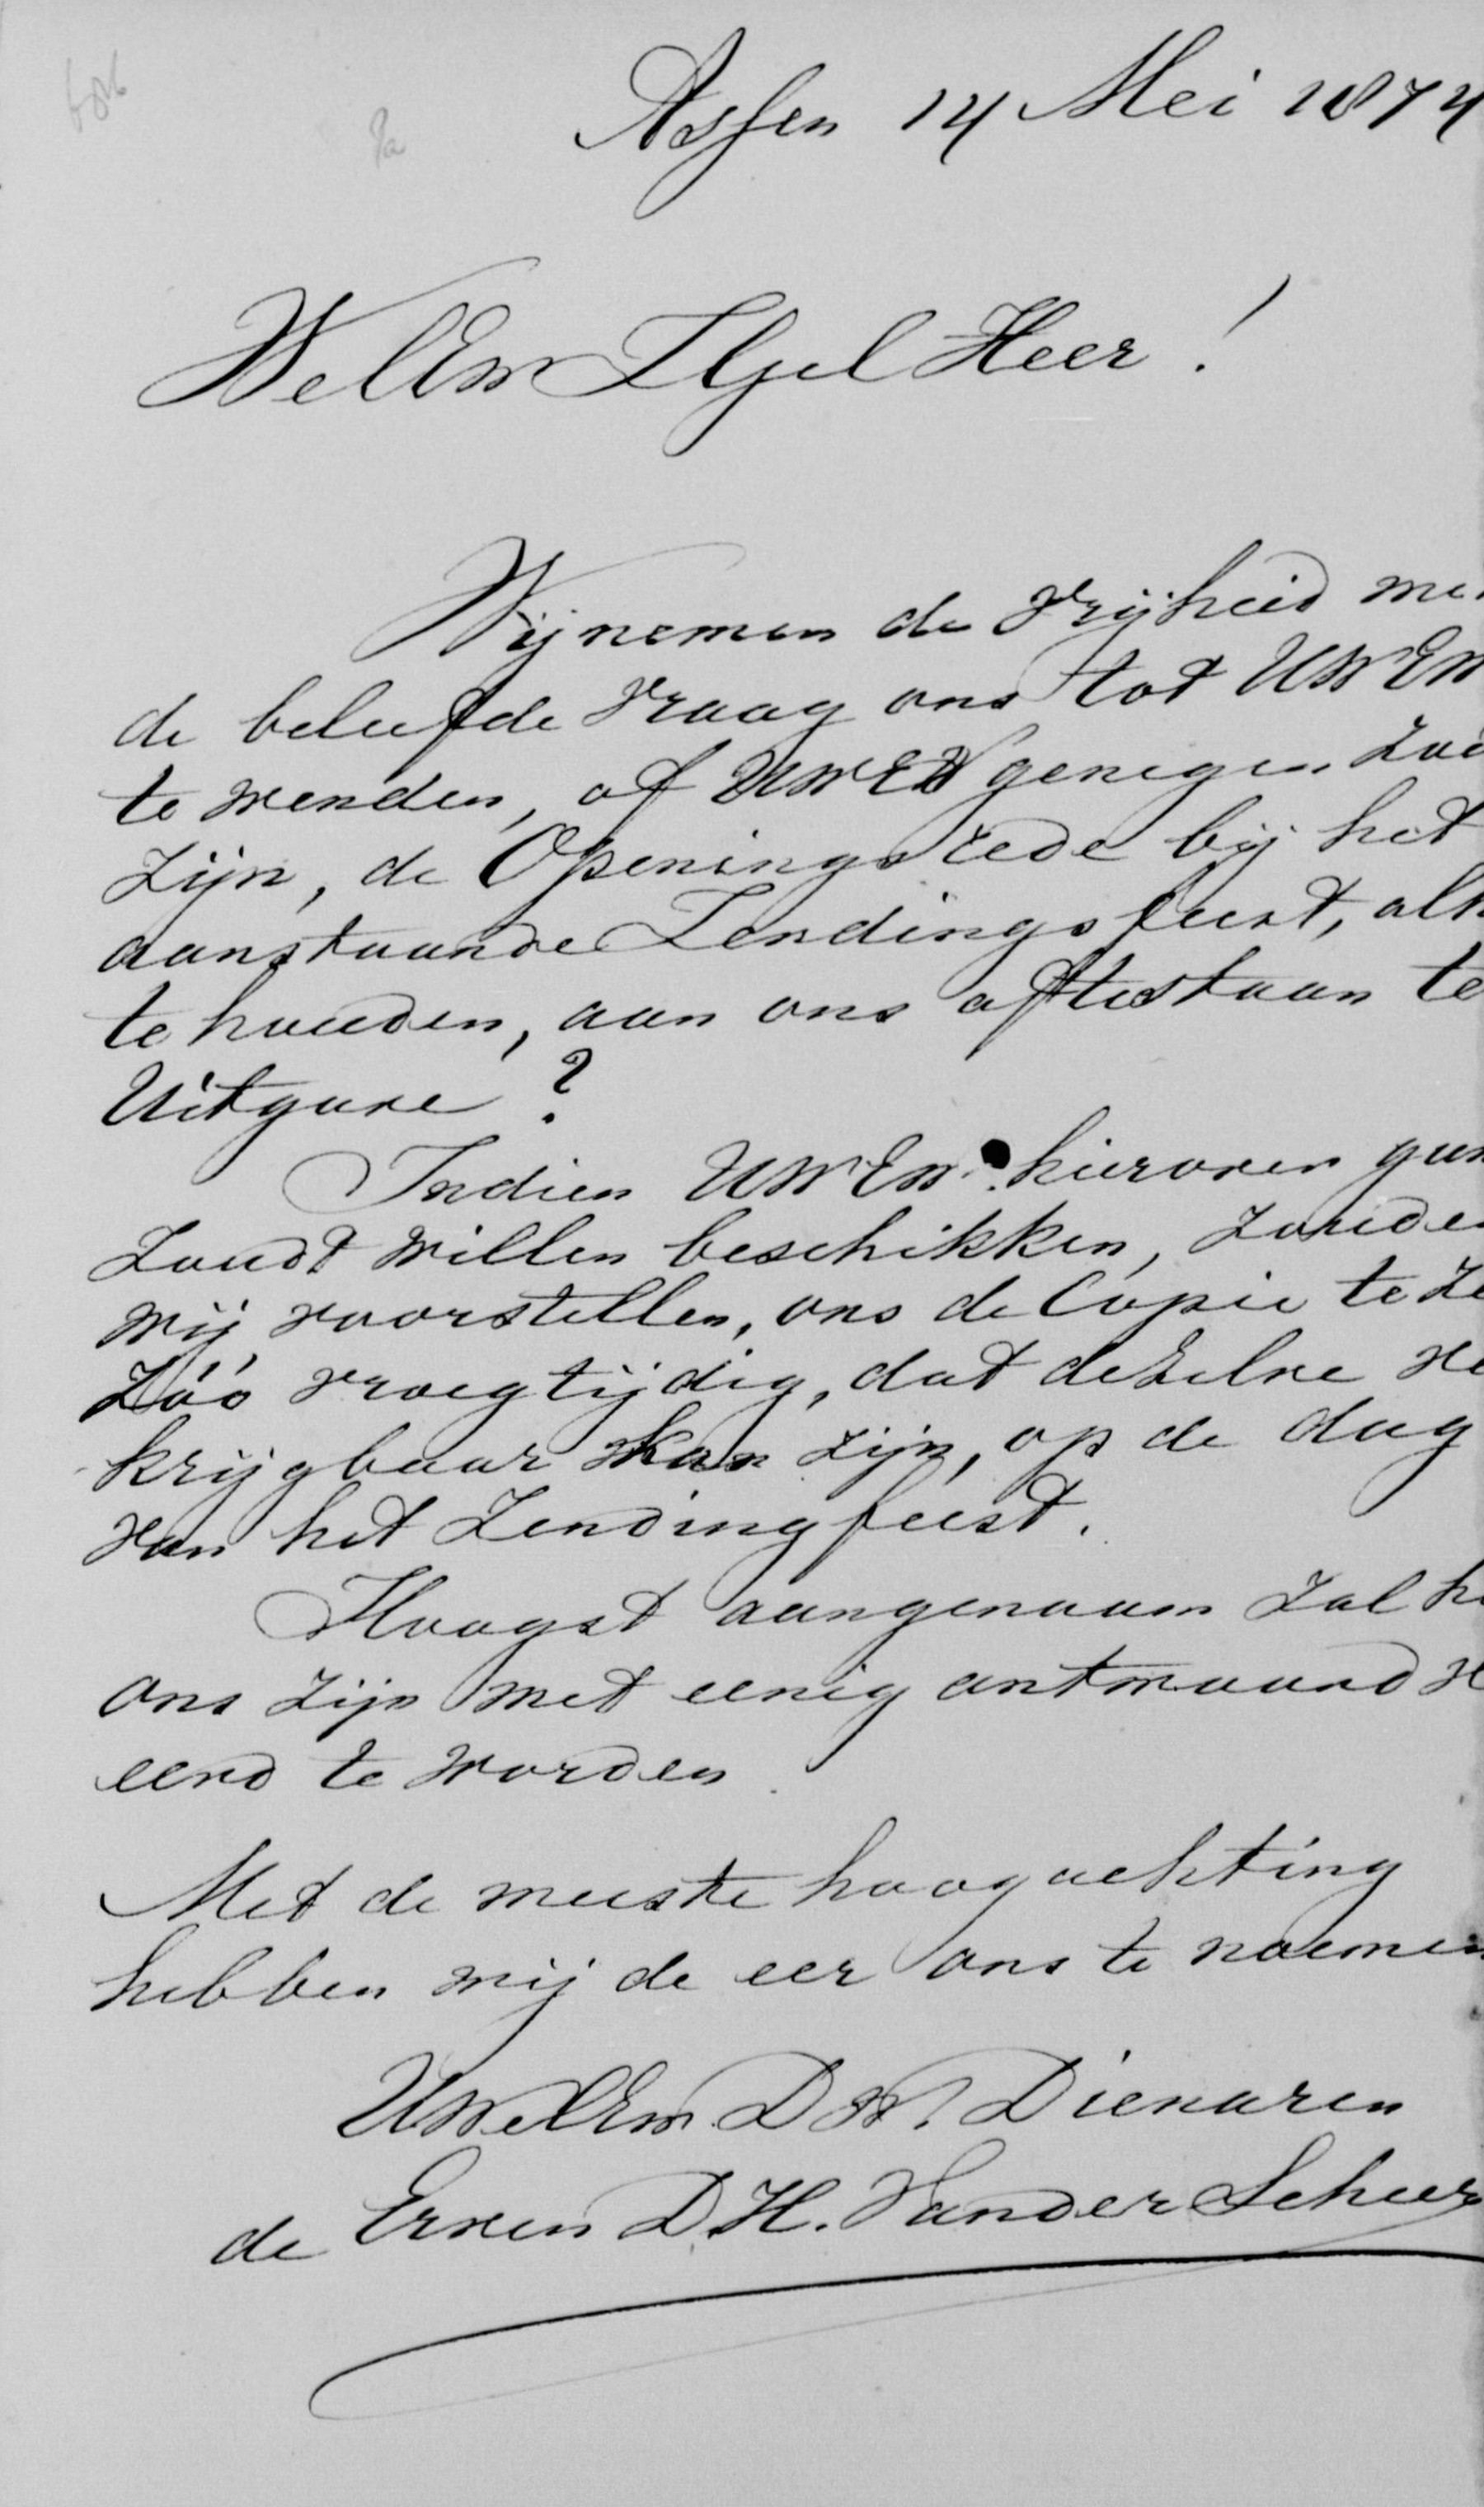 Assen 14 Mei 1874
WelEw ZGel Heer!
Wij nemen de vrijheid me
de beleefde vraag ons tot UWEw
te wenden, of UWEW genegen zou
zijn, de Openingsrede bij het
aanstaande Zendingsfeest, alh
te houden, aan ons aftestaan te
Uitgave?
Indien UWEw hierover gun
zoudt willen beschikken, zouden
wij voorstellen, ons de Copie te ze
zóó vroegtijdig, dat dezelve ve
krijgbaar kan zijn, op de dag
van het Zendingfeest.
Hoogst aangenaam zal he
ons zijn met eenig antwoord ver
eerd te worden.
Met de meeste hoogachting
hebben wij de eer ons te noemen
UwelEw. DW. Dienaren
de Erven D.H. Van der Scheer